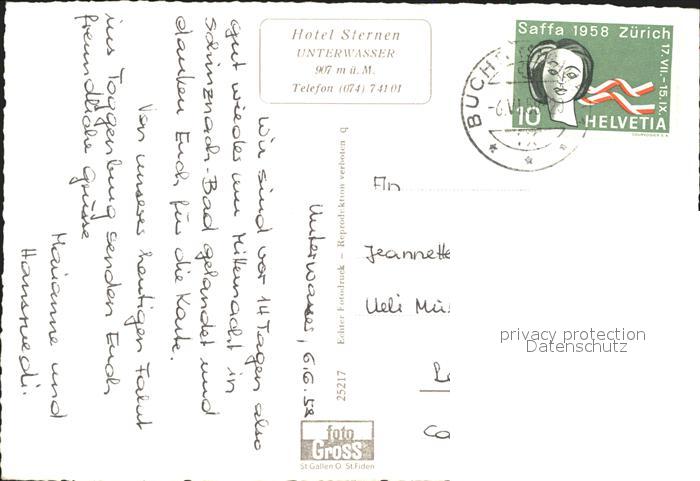 Hotel Sternen
UNTERWASSER
907 m ü. M.
Telefon (074) 7 41 01
Saffa 1958 Zürich
17.VII.-15.IX.
10 HELVETIA
COURVOISIER S.A.
BUCHS
-6.VI.
Unterwasser, 6.6.58
Wir sind vor 14 Tagen also
gut wieder um Mitternacht in
Schinznach-Bad gelandet und
danken Euch für die Karte.
Von unserer heutigen Fahrt
ins Toggenburg senden Euch
freundliche Grüsse
Marianne und
Hansruedi.
25217 Echter Fotodruck – Reproduktion verboten q
foto
Gross
St Gallen O St.Fiden
An
Jeannette
Ueli
privacy protection
Datenschutz